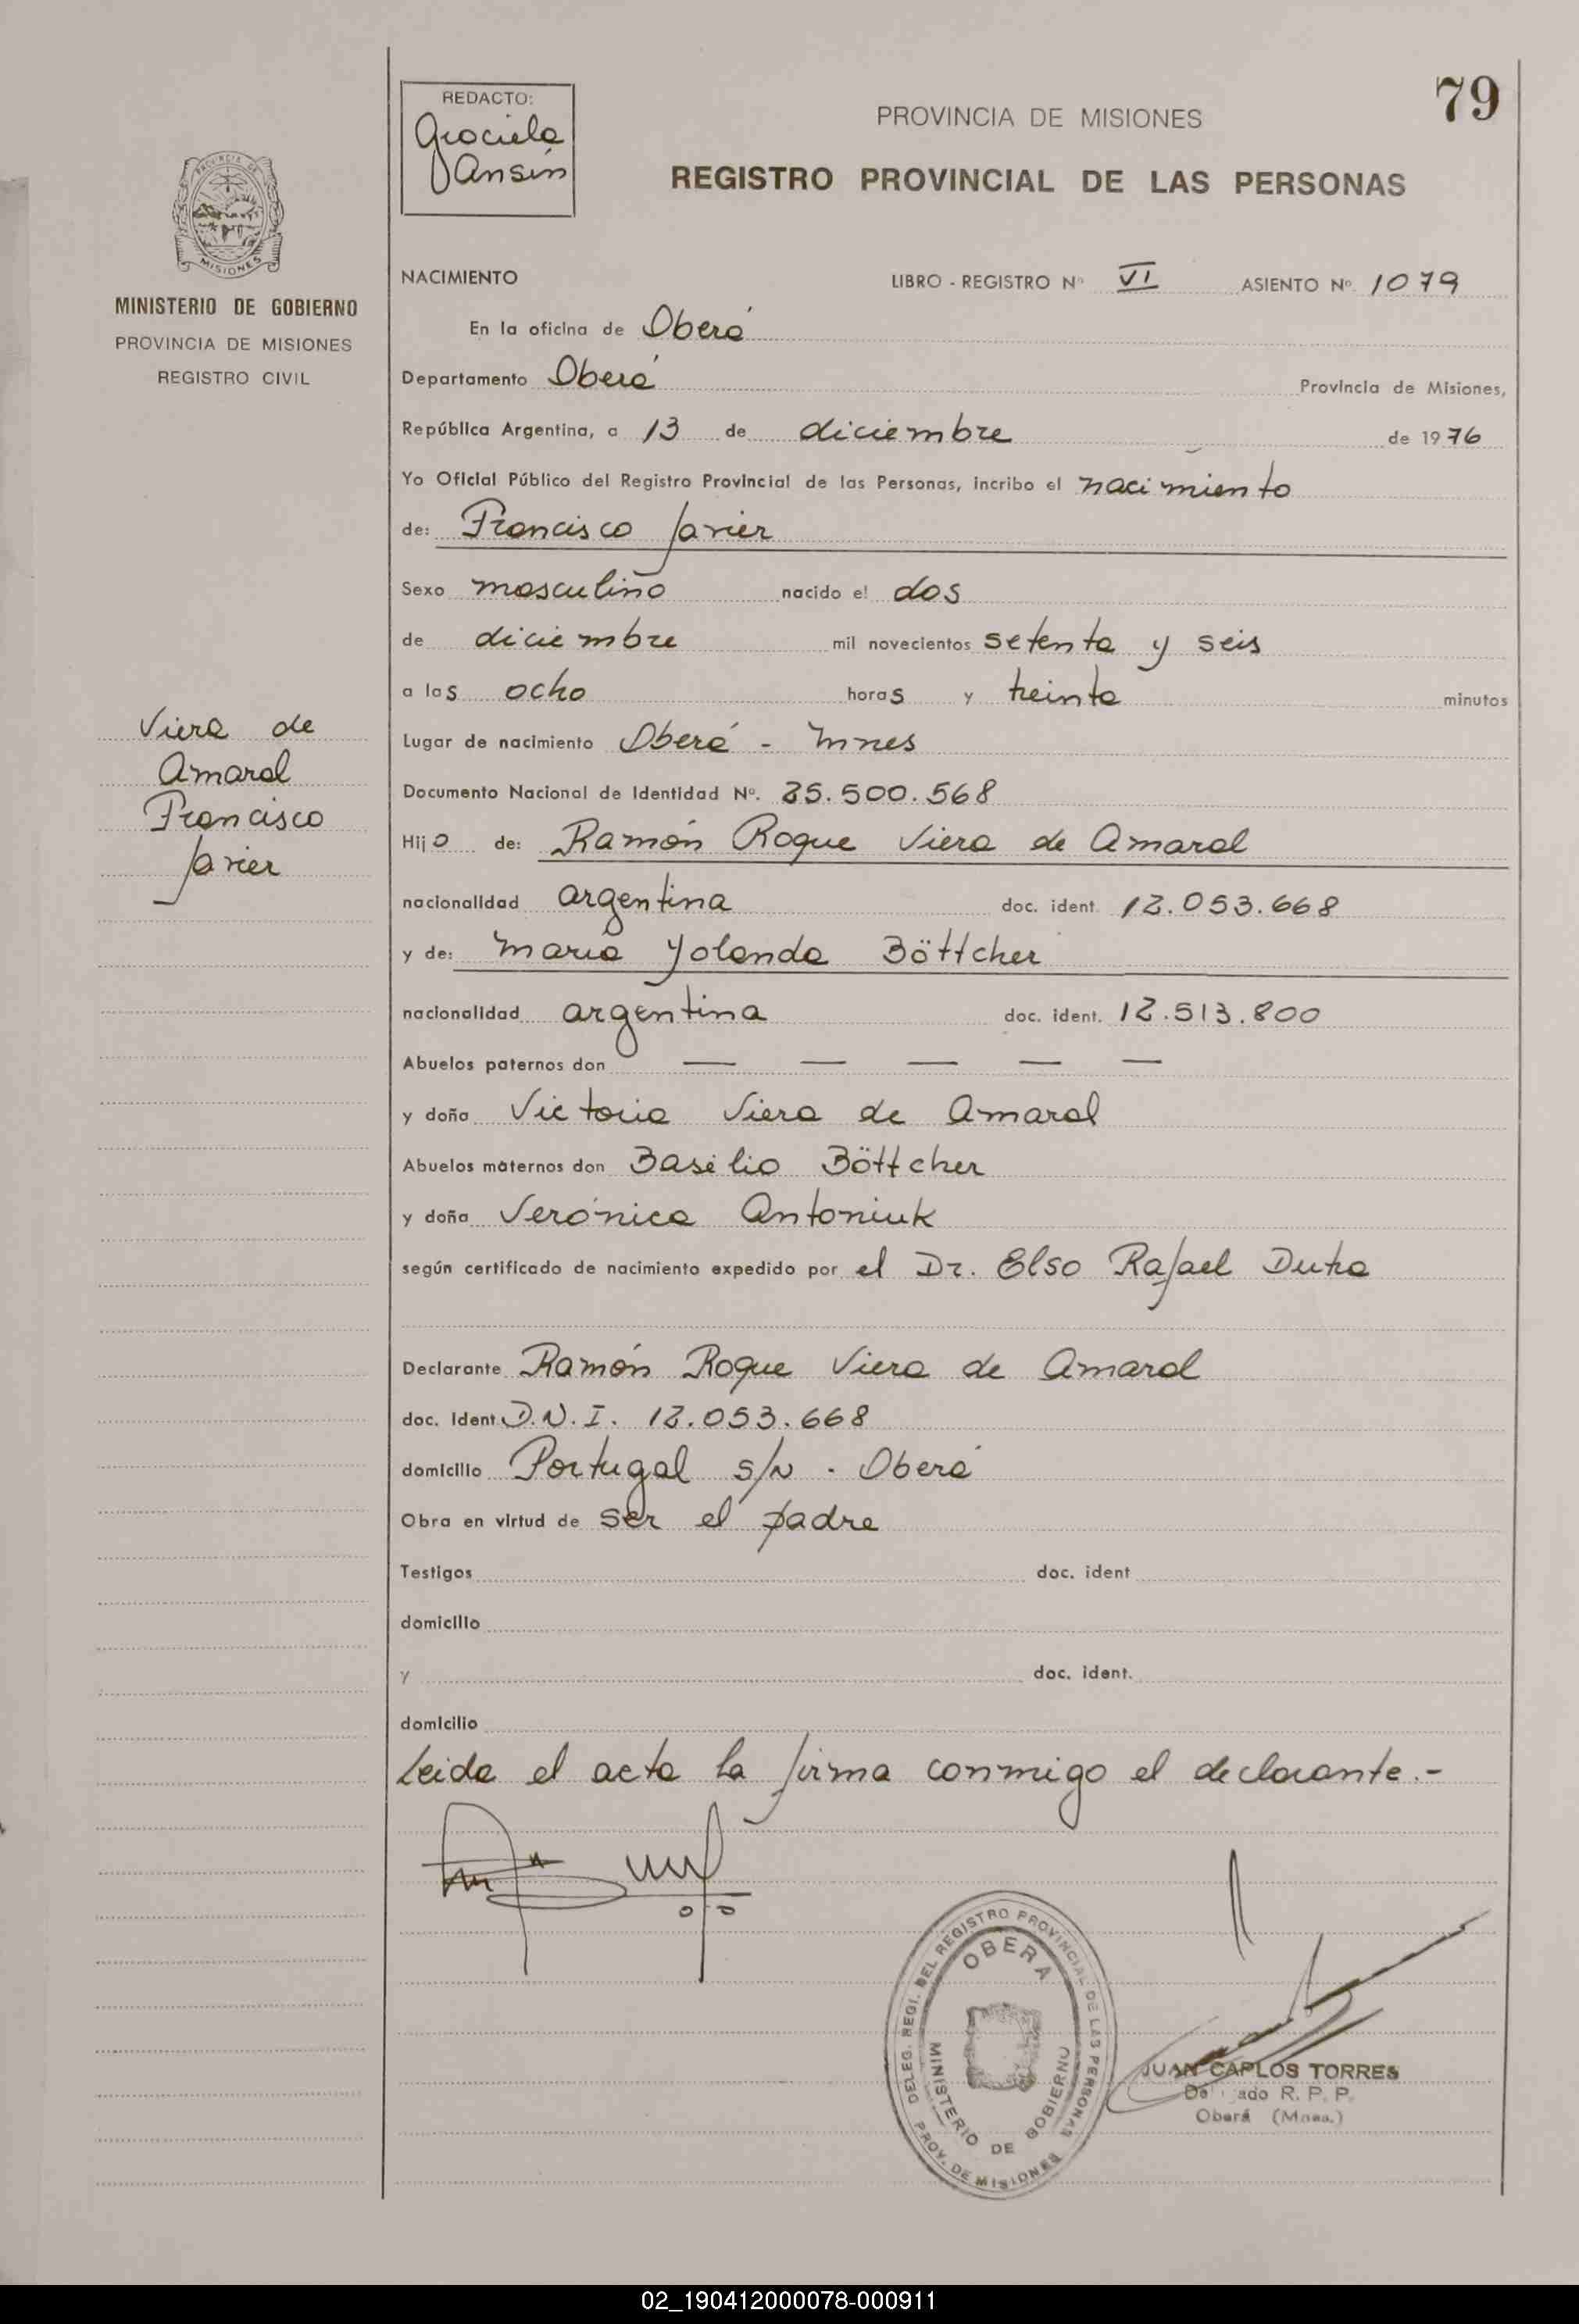 79
REDACTO:
Graciela
Jansin
PROVINCIA DE MISIONES
REGISTRO PROVINCIAL DE LAS PERSONAS
PROVINCIA DE
MISIONES
MINISTERIO DE GOBIERNO
PROVINCIA DE MISIONES
REGISTRO CIVIL
Viera de
Amaral
Francisco
Javier
NACIMIENTO LIBRO - REGISTRO Nº VI ASIENTO Nº 1079
En la oficina de Oberá
Departamento Oberá Provincia de Misiones,
República Argentina, a 13 de diciembre de 1976
Yo Oficial Público del Registro Provincial de las Personas, incribo el nacimiento
de: Francisco Javier
Sexo masculino nacido el dos
de diciembre mil novecientos setenta y seis
a las ocho horas y treinta minutos
Lugar de nacimiento Oberá - Mnes
Documento Nacional de Identidad Nº. 25.500.568
Hijo de: Ramón Roque Viera de Amaral
nacionalidad argentina doc. ident. 12.053.668
y de: María Yolanda Böttcher
nacionalidad argentina doc. ident. 12.513.800
Abuelos paternos don — — — — —
y doña Victoria Viera de Amaral
Abuelos maternos don Basilio Böttcher
y doña Verónica Antoniuk
según certificado de nacimiento expedido por el Dr. Elso Rafael Dutra
Declarante Ramón Roque Viera de Amaral
doc. Ident. D.N.I. 12.053.668
domicilio Portugal s/N - Oberá
Obra en virtud de ser el padre
Testigos doc. ident
domicilio
y doc. ident.
domicilio
Leida el acta la firma conmigo el declarante.-
DELEG. REGI. DEL REGISTRO PROVINCIAL DE LAS PERSONAS
OBERA
MINISTERIO DE GOBIERNO
PROV. DE MISIONES
JUAN CARLOS TORRES
R. P. P.
Oberá (Mnes.)
02_190412000078-000911